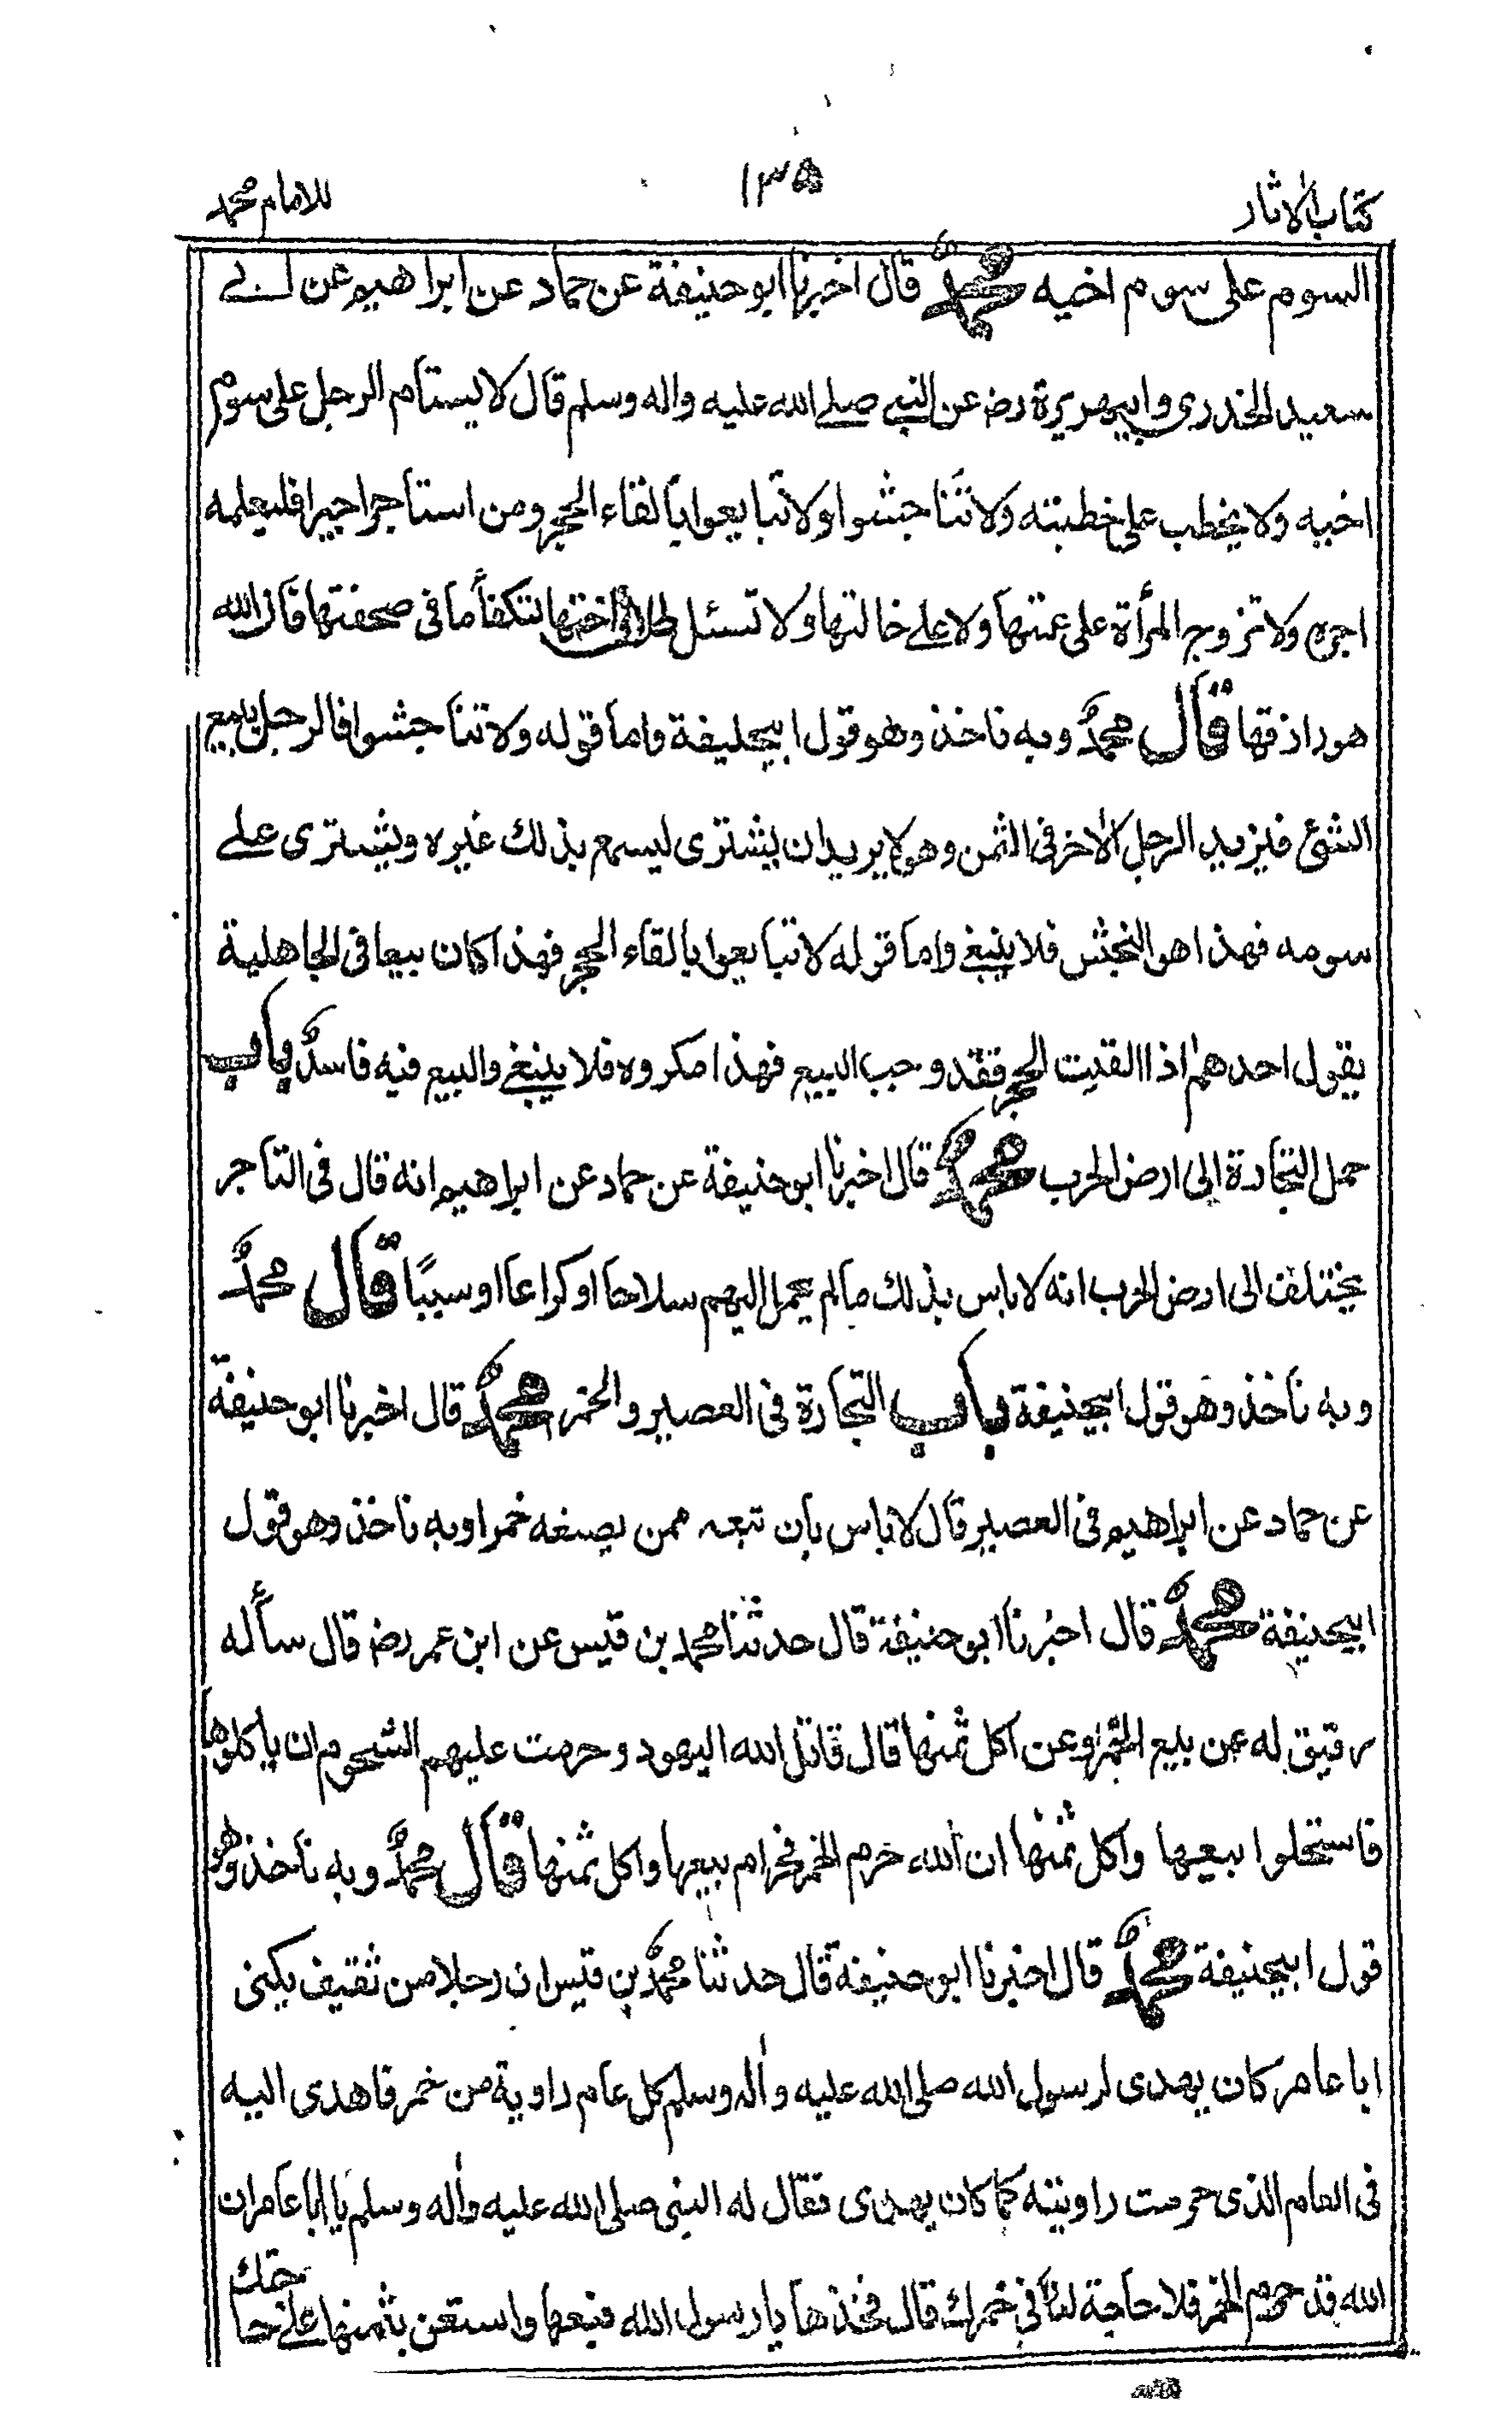 كتاب الاثار
١٣۵
للامام محمد
السوم على سوم اخيه محمد قال اخبرنا ابو حنيفة عن حماد عن ابراهيم عن ابے
سعيد الخدرى وابيهريرة رض عن النبى صلے الله عليه واله وسلم قال لا يستام الرجل على سوم
اخيه ولا يخطب على خطبته ولا تناجشوا ولا تبايعوا بالقاء الحجر ومن استاجر اجيرا فليعلمه
اجره ولا تزوج المرأة على عمتها ولا علے خالتها ولا تسئل طلاق اختها لتكفأ ما فى صحفتها فان الله
هو رازقها قال محمد وبه ناخذ وهو قول ابيحنيفة واما قوله ولا تناجشوا فالرجل يبيع
الشئ فيزيد الرجل الاٰخر فى الثمن وهو لا يريد ان يشترى ليسمع بذلك غيره ويشترى علے
سومه فهذا هو النجش فلا ينبغى واما قوله لا تبايعوا بالقاء الحجر فهذا كان بيعا فى الجاهلية
يقول احدهم اذا القيت الحجر فقد وجب البيع فهذا مكروه فلا ينبغے والبيع فيه فاسد باب
حمل التجارة الى ارض الحرب محمد قال اخبرنا ابو حنيفة عن حماد عن ابراهيم انه قال فى التاجر
يختلف الى ارض الحرب انه لا باس بذلك مالم يحمل اليهم سلاحا او كراعا او سبيًا قال محمد
وبه ناخذ وهو قول ابيحنيفة باب التجارة فى العصير والخمر محمد قال اخبرنا ابو حنيفة
عن حماد عن ابراهيم فى العصير قال لا باس بان تبعه ممن يصنعه خمرا وبه ناخذ وهو قول
ابيحنيفة محمد قال اخبرنا ابو حنيفة قال حدثنا محمد بن قيس عن ابن عمر رض قال سأله
رفيق له عن بيع الخمر وعن اكل ثمنها قال قاتل الله اليهود وحرمت عليهم الشحوم ان ياكلوها
فاستحلوا بيعها واكل ثمنها ان الله حرم الخمر فحرام بيعها واكل ثمنها قال محمد وبه ناخذ وهو
قول ابيحنيفة محمد قال اخبرنا ابو حنيفة قال حدثنا محمد بن قيس ان رجلا من ثقيف يكنى
ابا عامر كان يهدى لرسول الله صلى الله عليه واٰله وسلم كل عام راوية من خمر فاهدى اليه
فى العام الذى حرمت راويته كما كان يهدى فقال له النبى صلى الله عليه واٰله وسلم يا ابا عامر ان
الله قد حرم الخمر فلا حاجة لنا فى خمرك قال فخذها يا رسول الله فبعها واستعن بثمنها علے حاجتك